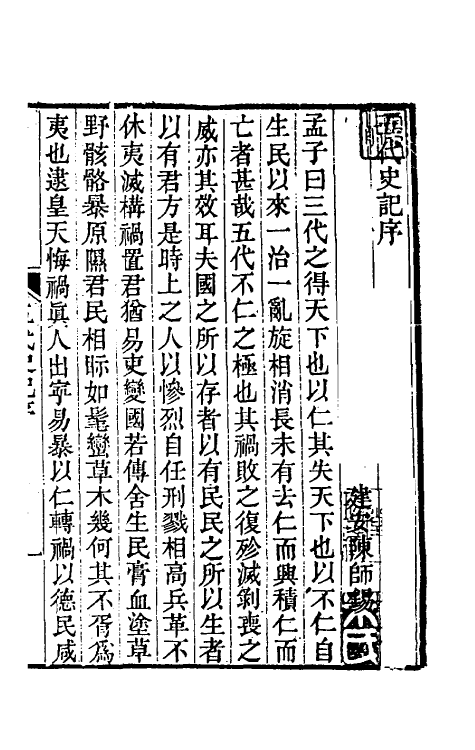 五代史記序
建安陳師錫
孟子曰三代之得天下也以仁其失天下也以不仁自
生民以來一治一亂旋相消長未有去仁而興積仁而
亡者甚哉五代不仁之極也其禍敗之復殄滅剝喪之
威亦其效耳夫國之所以存者以有民民之所以生者
以有君方是時上之人以慘烈自任刑戮相高兵革不
休夷滅構禍置君猶易吏變國若傳舍生民膏血塗草
野骸骼暴原隰君民相眎如髦蠻草木幾何其不胥爲
夷也逮皇天悔禍眞人出寧易暴以仁轉禍以德民咸